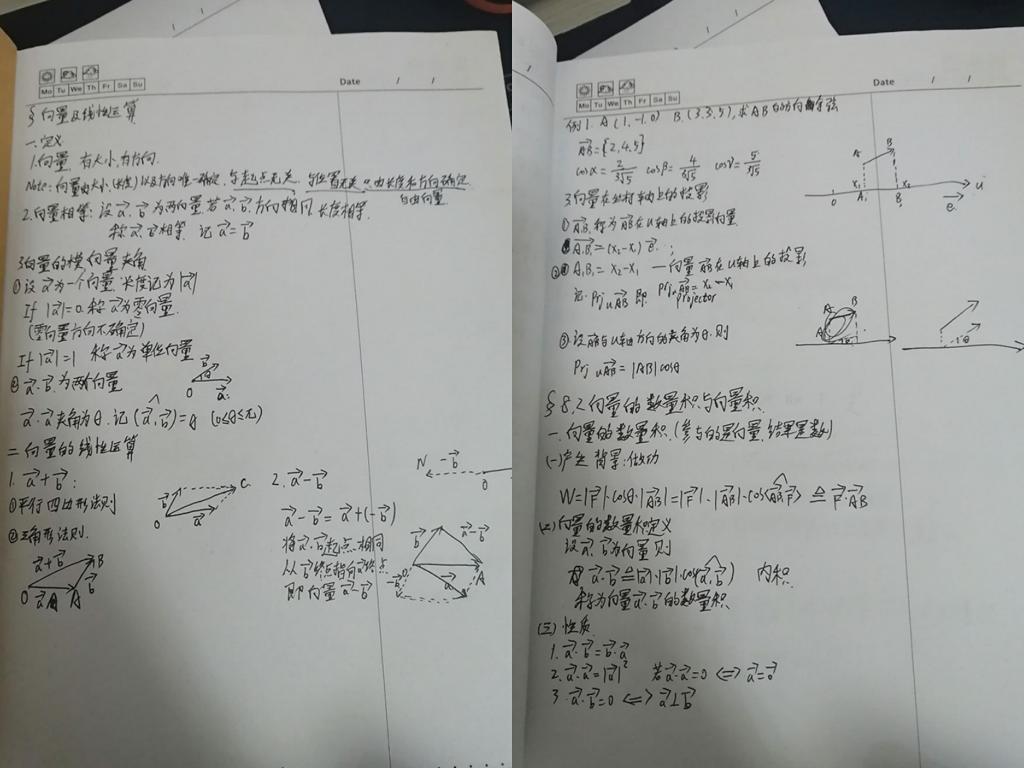 Date / /
Mo Tu We Th Fr Sa Su
§ 向量及线性运算
一.定义
1.向量 有大小,有方向.
Note: 向量由大小(长度)以及方向唯一确定,与起点无关. 与位置无关 由长度和方向确定.
自由向量
2.向量相等: 设a⃗.b⃗为两向量.若a⃗.b⃗方向相同,长度相等.
称a⃗.b⃗相等. 记a⃗=b⃗
3.向量的模.向量夹角
①设a⃗为一个向量.长度记为|a⃗|
If |a⃗|=0.称a⃗为零向量.
(零向量方向不确定)
If |a⃗|=1 称a⃗为单位向量
②a⃗.b⃗.为两个向量
b⃗
θ
O a⃗
a⃗.b⃗夹角为θ.记(a⃗,b⃗)=θ (0≤θ≤π)
二 向量的线性运算
1. a⃗+b⃗:
①平行四边形法则
b⃗ C
O a⃗
②三角形法则.
a⃗+b⃗ B
O a⃗ A b⃗
2. a⃗-b⃗
N -b⃗
O
a⃗-b⃗=a⃗+(-b⃗)
将a⃗.b⃗起点相同
从b⃗终点指向a⃗终点
即向量a⃗-b⃗
b⃗ a⃗-b⃗
-b⃗ a⃗ A
Date / /
Mo Tu We Th Fr Sa Su
例1. A(1,-1,0) B(3,3,5),求AB的方向余弦
A⃗B⃗={2,4,5}
cosα=2/3√5 cosβ=4/3√5 cosγ=5/3√5
3.向量在坐标轴上的投影
A B
O x₁ x₂ u
A₁ B₁ e⃗
①A₁B₁称为AB在u轴上的投影向量
A₁B₁=(x₂-x₁)e⃗.;
②A₁B₁=x₂-x₁ —向量AB在u轴上的投影
记.Prj uAB 即 Prj uAB=x₂-x₁
projector
A B
θ
θ
③设AB与u轴方向的夹角为θ.则
Prj uAB=|AB|cosθ
§8.2向量的数量积与向量积
一.向量的数量积.(参与的是向量,结果是数)
(一)产生背景:做功
W=|F⃗|·cosθ·|AB|=|F⃗|·|AB|·cos<AB,F⃗> ≙ F⃗·AB
(二)向量的数量积定义
设a⃗.b⃗为向量则
a⃗·b⃗≙|a⃗|·|b⃗|·cos(a⃗,b⃗) 内积
称为向量a⃗.b⃗的数量积
(三)性质
1.a⃗·b⃗=b⃗·a⃗
2.a⃗·a⃗=|a⃗|² 若a⃗·a⃗=0 <=> a⃗=0⃗
3.a⃗·b⃗=0 <=> a⃗⊥b⃗